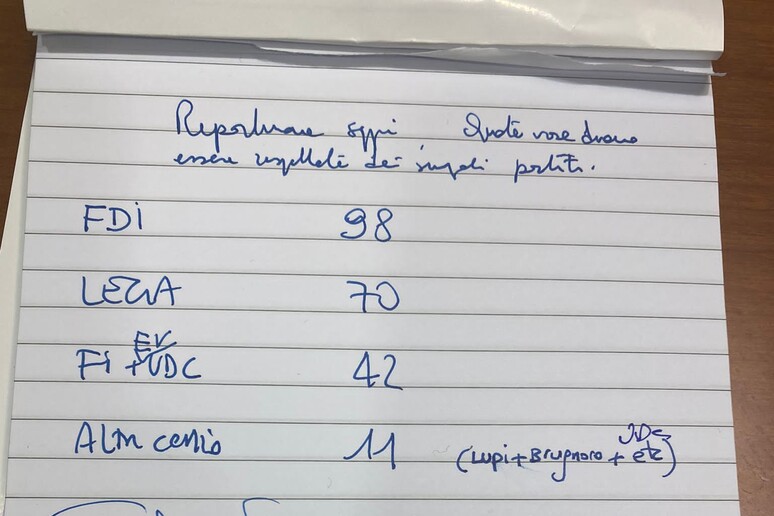 Ripartizione seggi Quote rosa devono
essere rispettate dai singoli partiti.
FDI 98
LEGA 70
EV
FI + UDC 42
Altri centro 11 (Lupi + Brugnaro + etc)